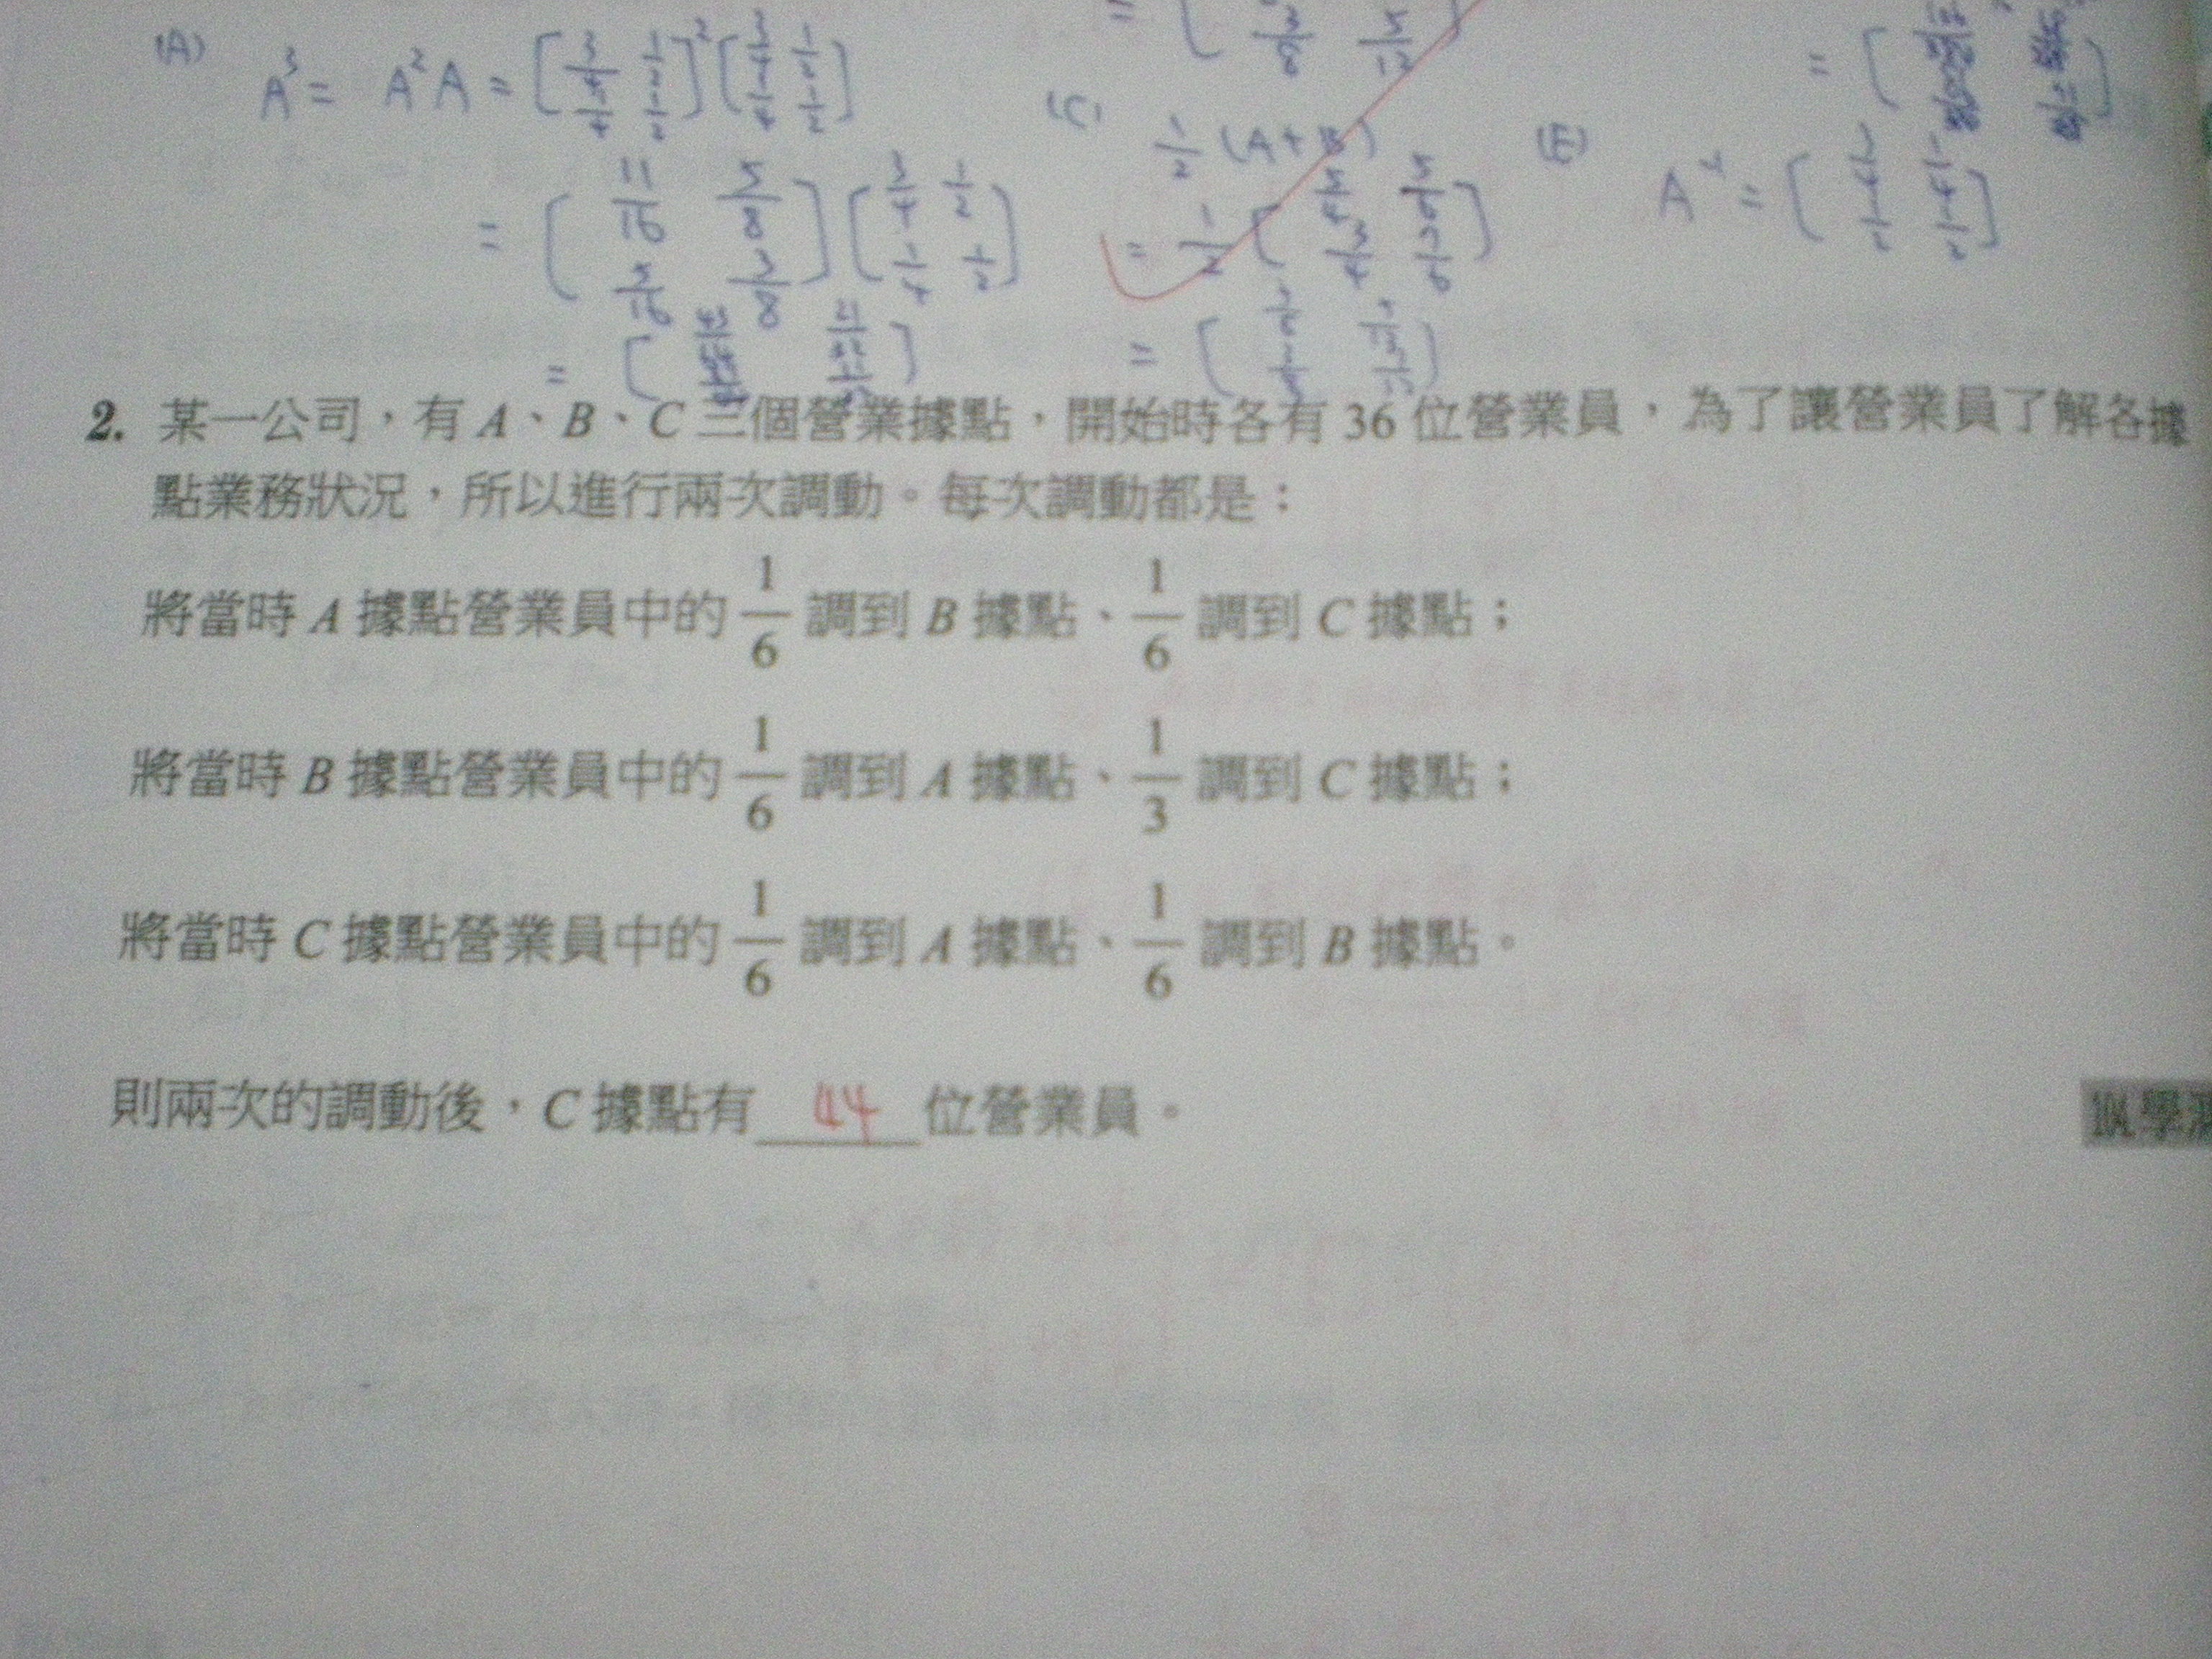 (A) A³ = A²A = [3/4 1/2 1/4 1/2]² [3/4 1/2 1/4 1/2]
= [11/16 5/8 5/16 3/8] [3/4 1/2 1/4 1/2]
(C) 1/2 (A+B)
= 1/2 [5/4 5/6 3/4 7/6]
(E)
2. 某一公司，有 A、B、C 三個營業據點，開始時各有 36 位營業員，為了讓營業員了解各據
點業務狀況，所以進行兩次調動。每次調動都是：
將當時 A 據點營業員中的 1/6 調到 B 據點、1/6 調到 C 據點；
將當時 B 據點營業員中的 1/6 調到 A 據點、1/3 調到 C 據點；
將當時 C 據點營業員中的 1/6 調到 A 據點、1/6 調到 B 據點。
則兩次的調動後，C 據點有 44 位營業員。
學測